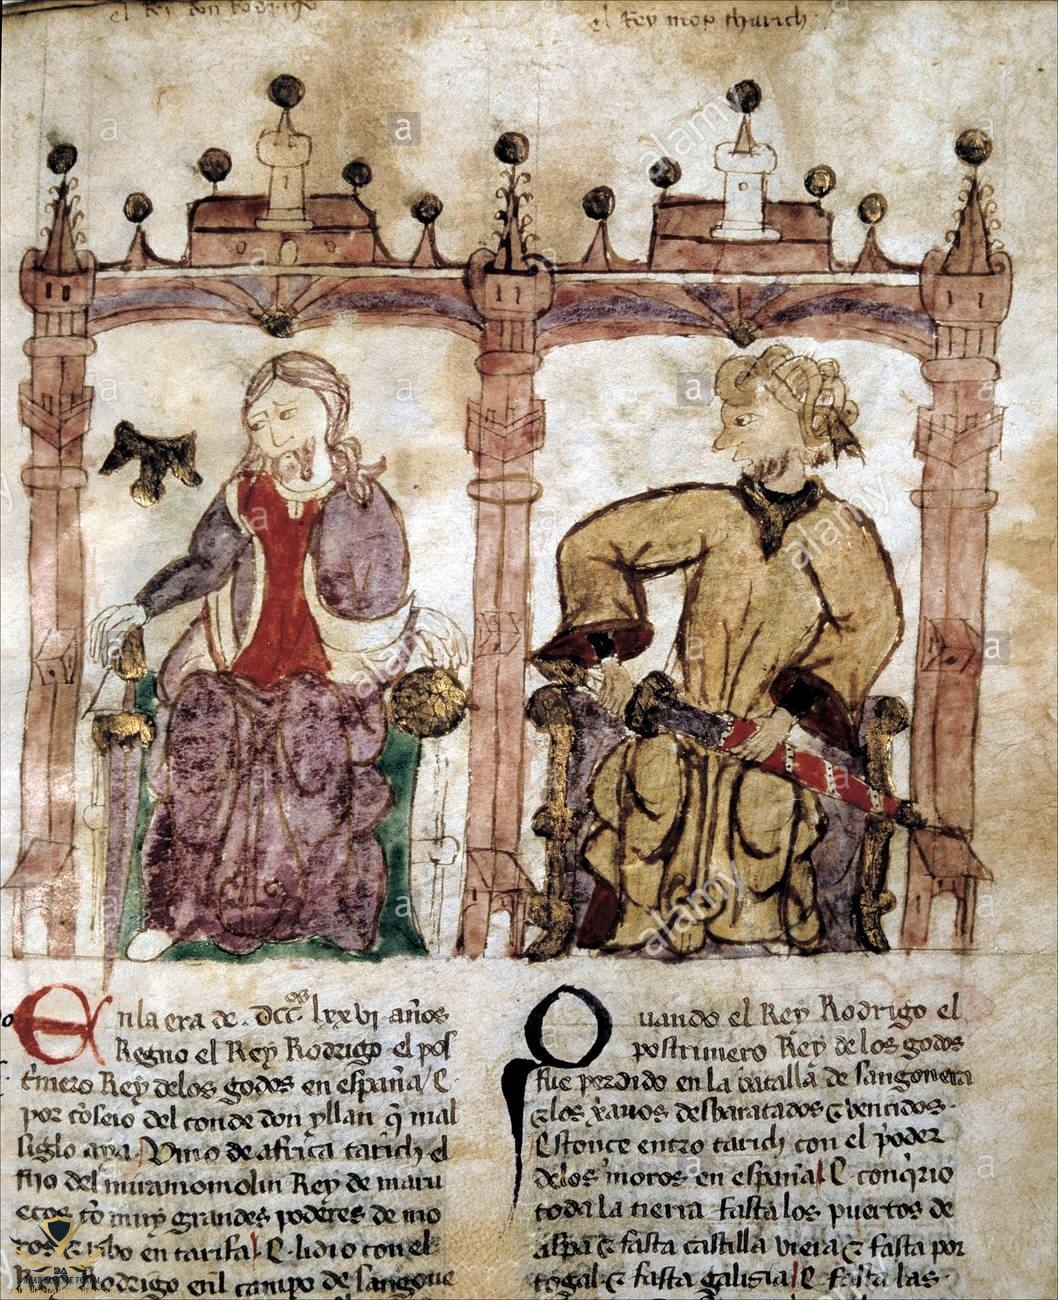 el Rei don Rodrigo
el Rey moro tharich
En la era de. DCC.os lxxvj años
Regno el Rey Rodrigo el pos
t'mero Rey delos godos en españa / E
por cõseio del conde don yllan q̃ mal
siglo aya / Vino de africa tarich el
fijo del miramomolin Rey de marru
ecos cõ muy grandes poderes de mo
ros & ribo en tarifa / E lidio con el
Rey Rodrigo enl campo de sangone
Quando el Rey Rodrigo el
postrimero Rey delos godos
fue perdido en la batalla de sangonera
& los x̃anos desbaratados & vencidos.
Estonce entro tarich con el poder
delos moros en espania / E conq̃rio
toda la tierra fasta los puertos de
aspa & fasta castilla vieia & fasta por
togal. & fasta galisia / E fasta las.
alamy
a